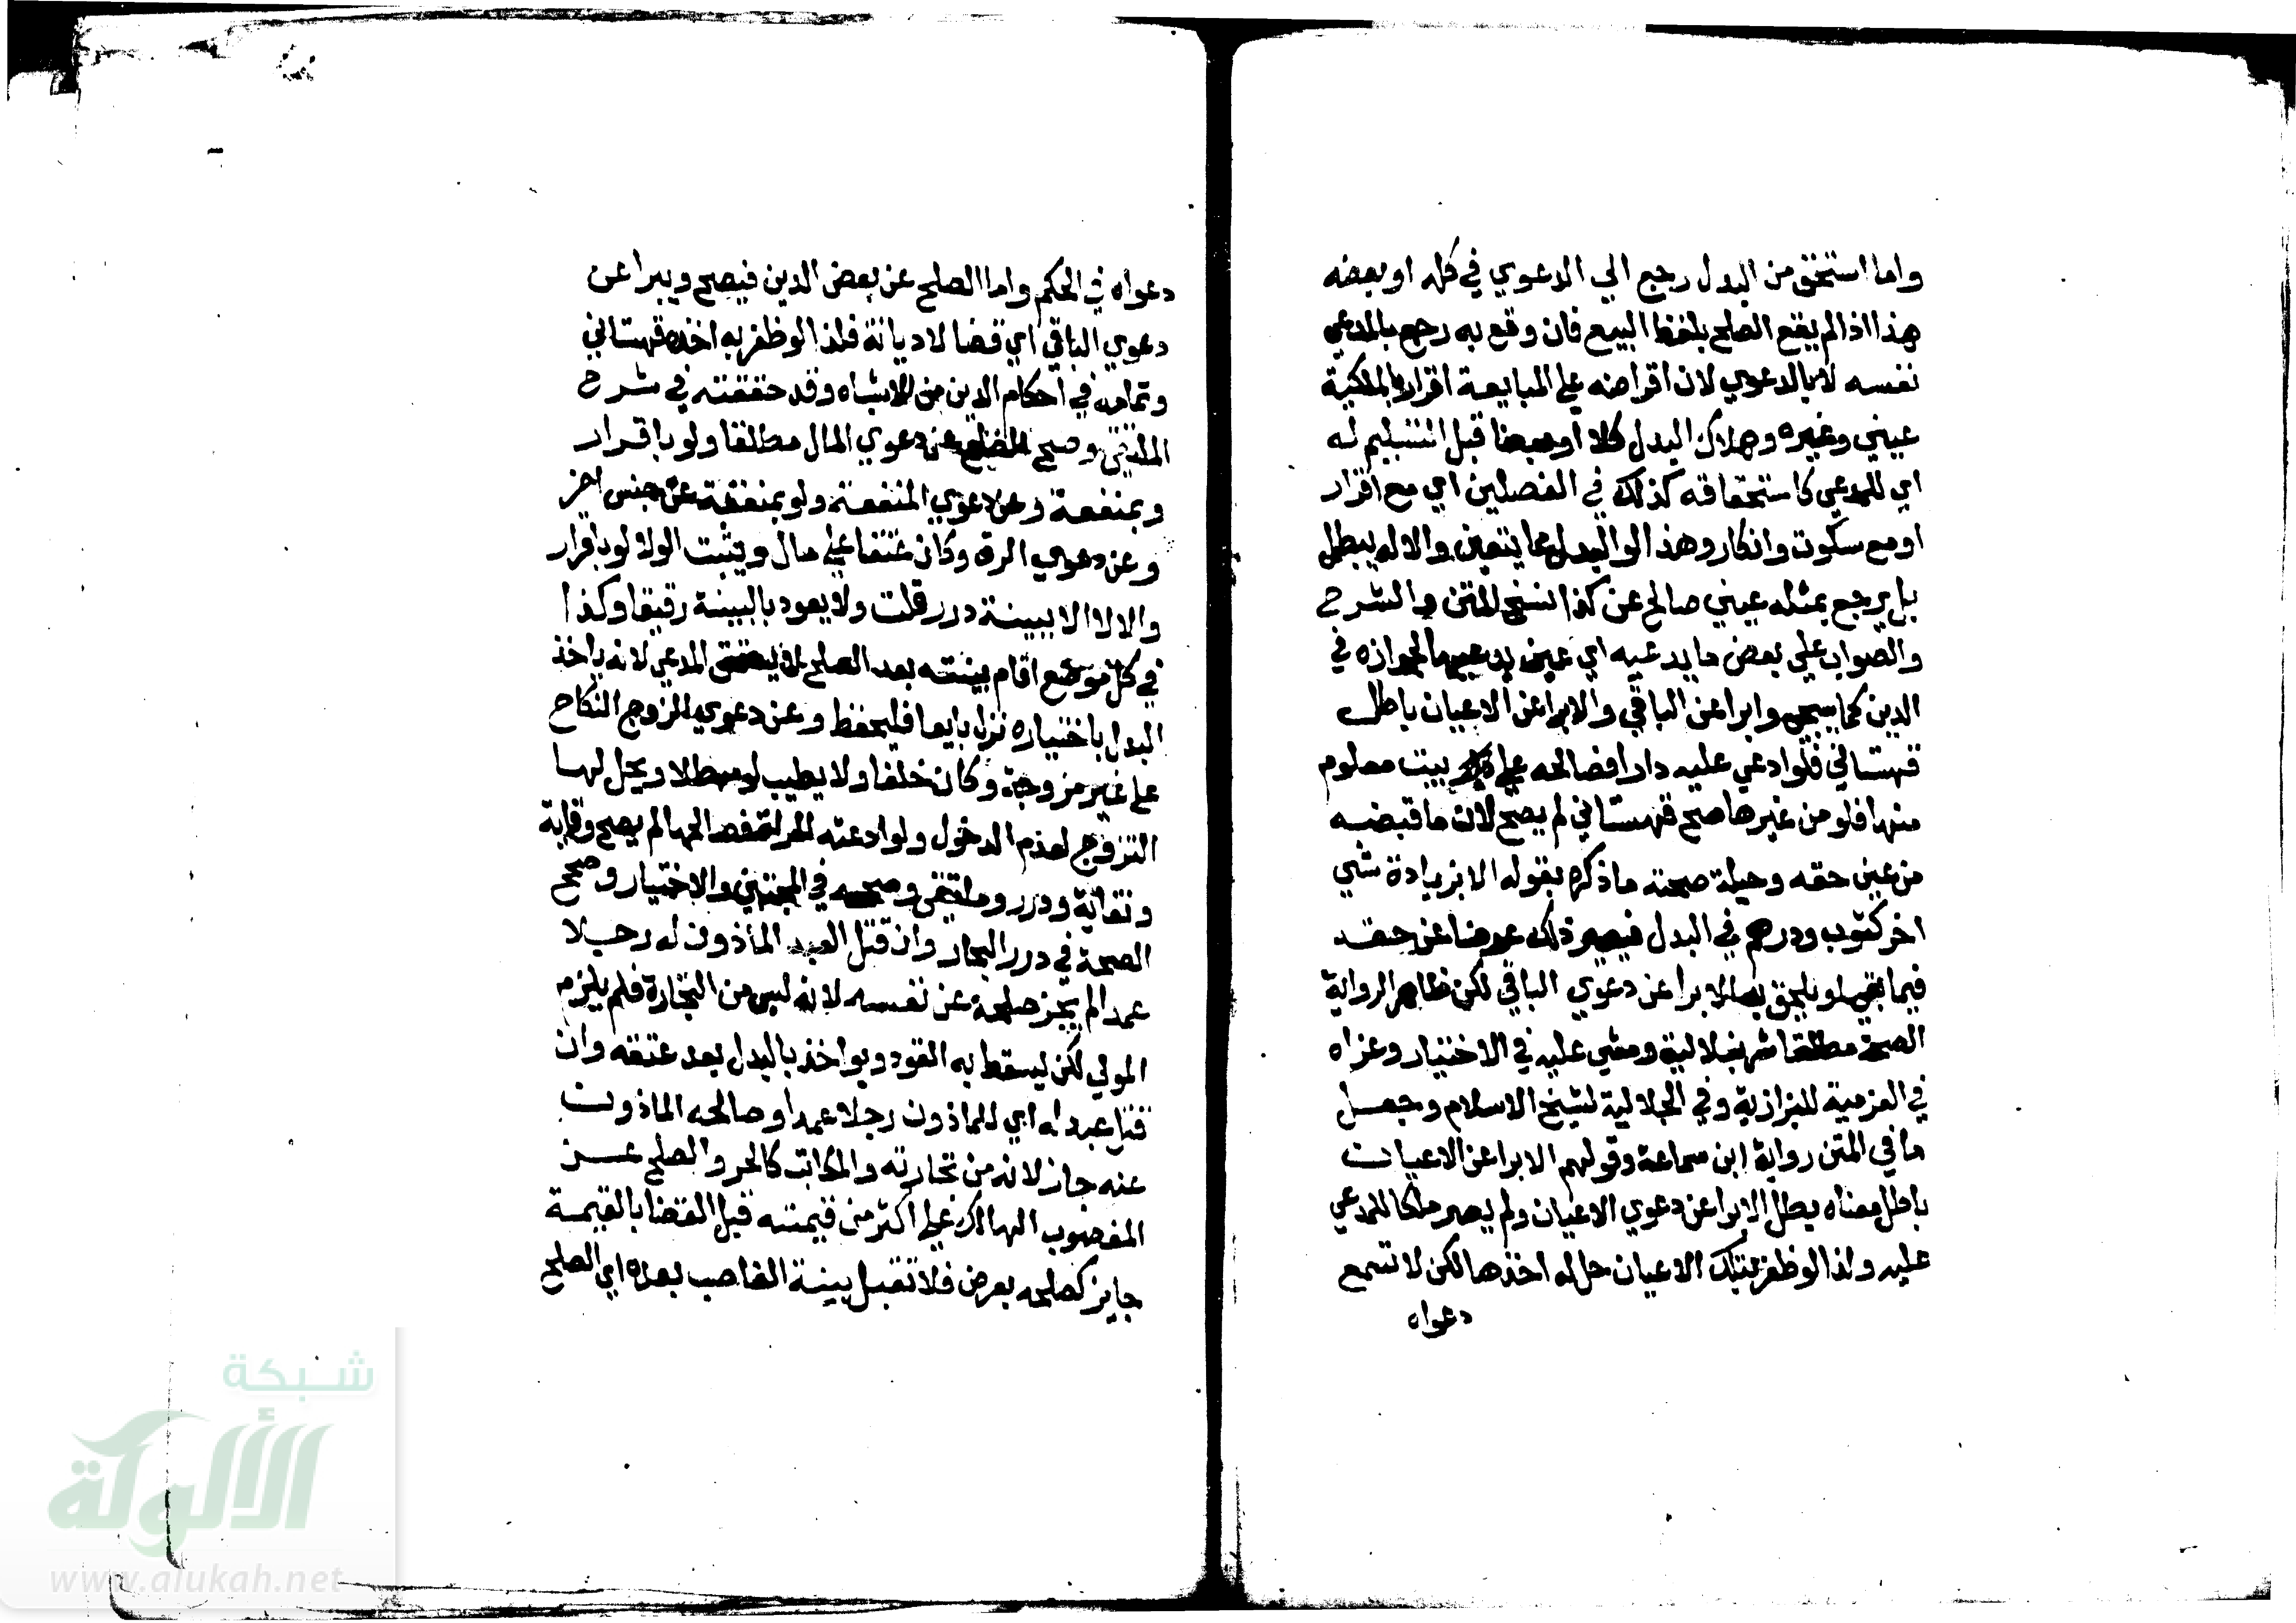 واما استحق من البدل رجع الي الدعوي في كله او بعضه
هذا اذا لم يقع الصلح بلفظ البيع فان وقع به رجع بالمدعي
نفسه لا بالدعوي لان اقراضه علي المبايعة اقرار بالملكية
عيني وغيره وهلاك البدل كلا او بعضا قبل التسليم له
اي للمدعي كاستحقاقه كذلك في الفصلين اي مع اقرار
او مع سكوت وانكار وهذا لو البدل مما يتعين والا لم يبطل
بل يرجع بمثله عيني صالح عن كذا نسخ المتن والشرح
والصواب علي بعض ما يدعيه اي عين يدعيها لجوازه في
الدين كما سيجي وابرا عن الباقي والابرا عن الاعيان باطل
قهستاني فلو ادعي عليه دارا فصالحه علي بيت معلوم
منها فلو من غيرها صح قهستاني لم يصح لان ما قبضه
من عين حقه وحيلة صحته ما ذكره بقوله الا بزيادة شي
اخر كثوب ودرهم في البدل فيصير ذلك عوضا عن حقه
فيما بقي او يلحق به الابرا عن دعوي الباقي لكن ظاهر الرواية
الصحة مطلقا شرنبلالية ومشي عليه في الاختيار وعزاه
في العزمية للبزازية وفي الجلالية لشيخ الاسلام وجعل
ما في المتن رواية ابن سماعة وقولهم الابرا عن الاعيان
باطل معناه بطل الابرا عن دعوي الاعيان ولم يصر ملكا للمدعي
عليه ولذا لو ظفر بتلك الاعيان حل له اخذها لكن لا تسمع
دعواه
دعواه في الحكم واما الصلح عن بعض الدين فيصح ويبرا عن
دعوي الباقي اي قضا لا ديانة فلذا لو ظفر به اخذه قهستاني
وتمامه في احكام الدين من الاشباه وقد حققته في شرح
الملتقي وصح الصلح عن دعوي المال مطلقا ولو باقرار
وبمنفعة وعن دعوي المنفعة ولو بمنفعة عن جنس اخر
وعن دعوي الرق وكان عتقا علي مال ويثبت الولا لو باقرار
والا لا الا ببينة درر قلت ولا يعود بالبينة رقيقا وكذا
في كل موضع اقام بينته بعد الصلح لا يستحق المدعي لانه باخذ
البدل باختياره نزل بايعا فليحفظ وعن دعوي الزوج النكاح
علي غير مزوجة وكان خلعا ولا يطيب لو مبطلا ويحل لها
التزوج لعدم الدخول ولو ادعته المراة فصالحها لم يصح وقاية
ونقاية ودرر وملتقي وصححه في المجتبي والاختيار وصحح
الصحة في درر البحار وان قتل العبد الماذون له رجلا
عمدا لم يجز صلحه عن نفسه لانه ليس من التجارة فلم يلزم
المولي لكن ليسقط به القود ويواخذ بالبدل بعد عتقه وان
قتل عبد له اي للماذون رجلا عمدا وصالحه الماذون
عنه جاز لانه من تجارته والمكاتب كالحر والصلح عن
المغصوب الهالك علي اكثر من قيمته قبل القضا بالقيمة
جايز كصلحه بعرض فلا تقبل بينة الغاصب بعده اي الصلح
شبكة
الألوكة
www.alukah.net